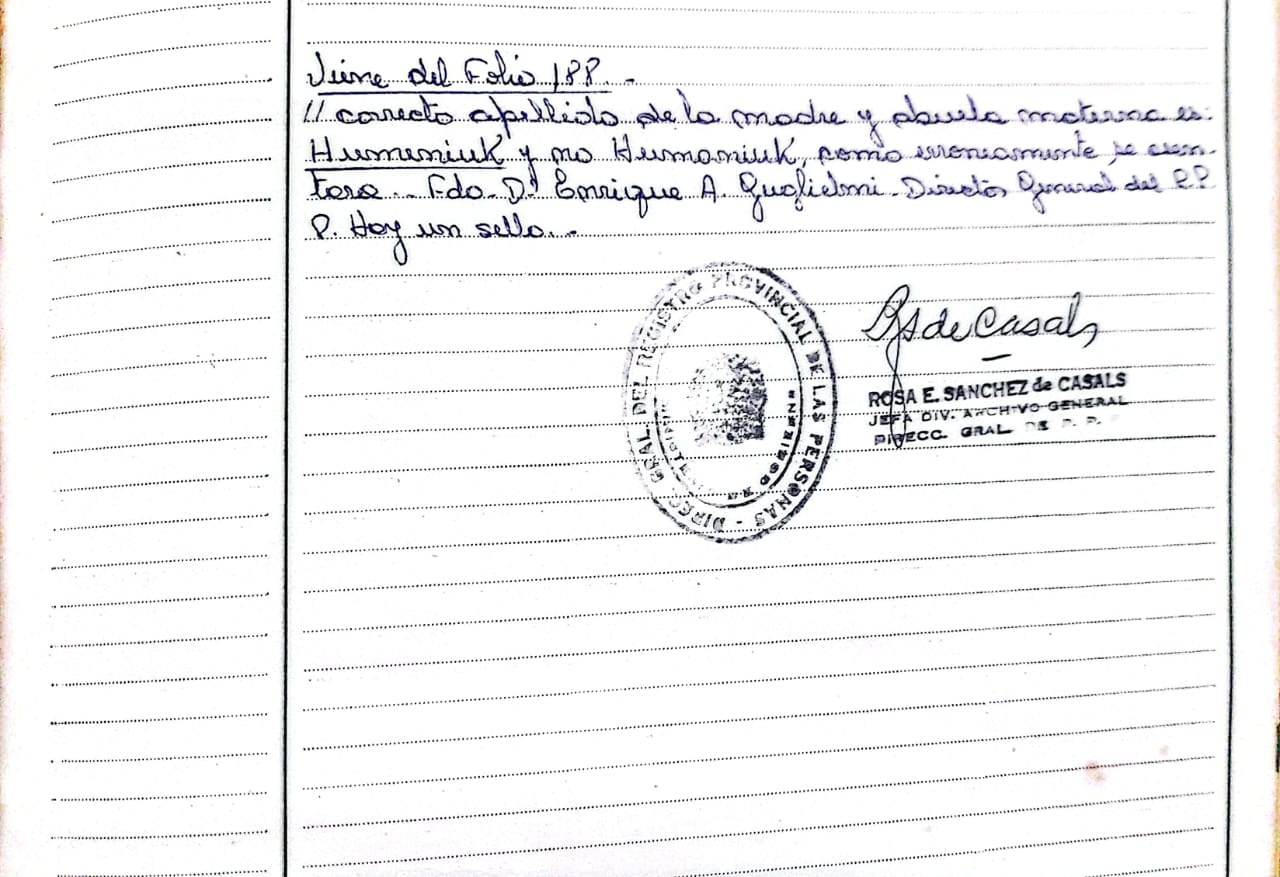 Viene del Folio 188. -
// correcto apellido de la madre y abuela materna es:
Humeniuk y no Humaniuk, como erroneamente se asen-
tara.- Fdo. Dr. Enrique A. Guglielmi - Director General del R.P.
P. Hay un sello. -
DIREC. GRAL. DEL REGISTRO PROVINCIAL DE LAS PERSONAS -
RS de Casals
ROSA E. SANCHEZ de CASALS
JEFA DIV. ARCHIVO GENERAL
DIRECC. GRAL. DE R. P.